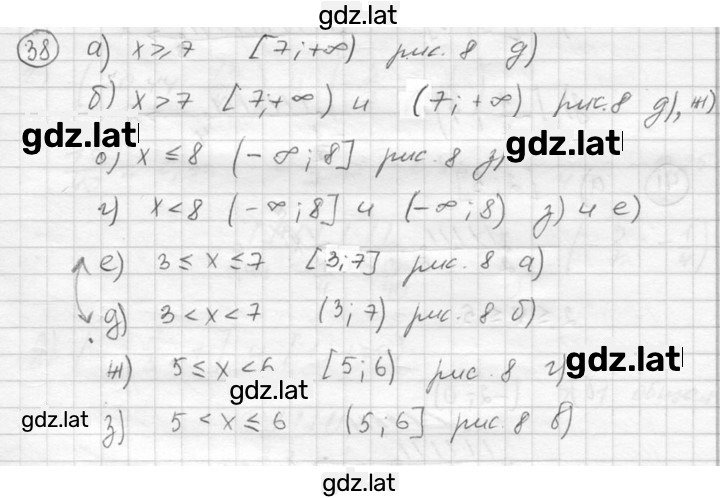 gdz.lat
38 а) x ⩾ 7 [7; +∞) рис. 8 д)
б) x > 7 [7; +∞) и (7; +∞) рис. 8 д), ж)
gdz.lat gdz.lat
в) x ≤ 8 (-∞; 8] рис. 8 з)
г) x < 8 (-∞; 8] и (-∞; 8) з) и е)
е) 3 ≤ x ≤ 7 [3; 7] рис. 8 а)
д) 3 < x < 7 (3; 7) рис. 8 б)
ж) 5 ≤ x < 6 [5; 6) рис. 8 г)
gdz.lat
gdz.lat
з) 5 < x ≤ 6 (5; 6] рис 8 в)
gdz.lat
gdz.lat